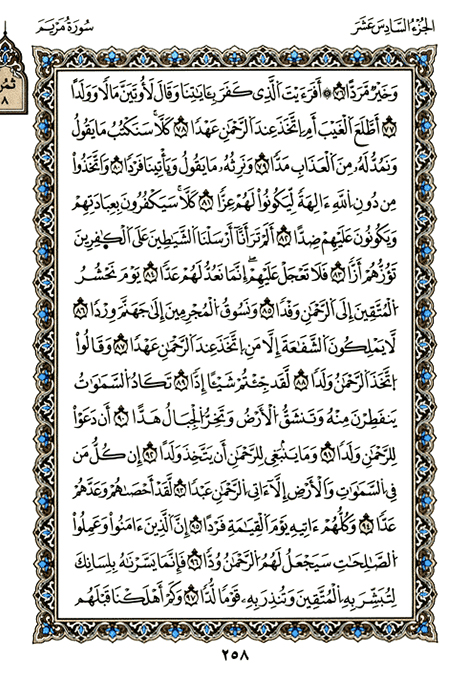 الجُزْءُ السَّادِسَ عَشَرَ
سُورَةُ مَرْيَم
ثُمُن
٨
وَخَيْرٌ مَّرَدًّا ٧٦ ۞ أَفَرَءَيْتَ ٱلَّذِى كَفَرَ بِـَٔايَٰتِنَا وَقَالَ لَأُوتَيَنَّ مَالًا وَوَلَدًا
٧٧ أَطَّلَعَ ٱلْغَيْبَ أَمِ ٱتَّخَذَ عِندَ ٱلرَّحْمَٰنِ عَهْدًا ٧٨ كَلَّا سَنَكْتُبُ مَا يَقُولُ
وَنَمُدُّ لَهُۥ مِنَ ٱلْعَذَابِ مَدًّا ٧٩ وَنَرِثُهُۥ مَا يَقُولُ وَيَأْتِينَا فَرْدًا ٨٠ وَٱتَّخَذُوا۟
مِن دُونِ ٱللَّهِ ءَالِهَةً لِّيَكُونُوا۟ لَهُمْ عِزًّا ٨١ كَلَّا سَيَكْفُرُونَ بِعِبَادَتِهِمْ
وَيَكُونُونَ عَلَيْهِمْ ضِدًّا ٨٢ أَلَمْ تَرَ أَنَّا أَرْسَلْنَا ٱلشَّيَٰطِينَ عَلَى ٱلْكَٰفِرِينَ
تَؤُزُّهُمْ أَزًّا ٨٣ فَلَا تَعْجَلْ عَلَيْهِمْ إِنَّمَا نَعُدُّ لَهُمْ عَدًّا ٨٤ يَوْمَ نَحْشُرُ
ٱلْمُتَّقِينَ إِلَى ٱلرَّحْمَٰنِ وَفْدًا ٨٥ وَنَسُوقُ ٱلْمُجْرِمِينَ إِلَىٰ جَهَنَّمَ وِرْدًا ٨٦
لَّا يَمْلِكُونَ ٱلشَّفَٰعَةَ إِلَّا مَنِ ٱتَّخَذَ عِندَ ٱلرَّحْمَٰنِ عَهْدًا ٨٧ وَقَالُوا۟
ٱتَّخَذَ ٱلرَّحْمَٰنُ وَلَدًا ٨٨ لَّقَدْ جِئْتُمْ شَيْـًٔا إِدًّا ٨٩ تَكَادُ ٱلسَّمَٰوَٰتُ
يَنفَطِرْنَ مِنْهُ وَتَنشَقُّ ٱلْأَرْضُ وَتَخِرُّ ٱلْجِبَالُ هَدًّا ٩٠ أَن دَعَوْا۟
لِلرَّحْمَٰنِ وَلَدًا ٩١ وَمَا يَنۢبَغِى لِلرَّحْمَٰنِ أَن يَتَّخِذَ وَلَدًا ٩٢ إِن كُلُّ مَن
فِى ٱلسَّمَٰوَٰتِ وَٱلْأَرْضِ إِلَّا ءَاتِى ٱلرَّحْمَٰنِ عَبْدًا ٩٣ لَّقَدْ أَحْصَىٰهُمْ وَعَدَّهُمْ
عَدًّا ٩٤ وَكُلُّهُمْ ءَاتِيهِ يَوْمَ ٱلْقِيَٰمَةِ فَرْدًا ٩٥ إِنَّ ٱلَّذِينَ ءَامَنُوا۟ وَعَمِلُوا۟
ٱلصَّٰلِحَٰتِ سَيَجْعَلُ لَهُمُ ٱلرَّحْمَٰنُ وُدًّا ٩٦ فَإِنَّمَا يَسَّرْنَٰهُ بِلِسَانِكَ
لِتُبَشِّرَ بِهِ ٱلْمُتَّقِينَ وَتُنذِرَ بِهِۦ قَوْمًا لُّدًّا ٩٧ وَكَمْ أَهْلَكْنَا قَبْلَهُم
٢٥٨